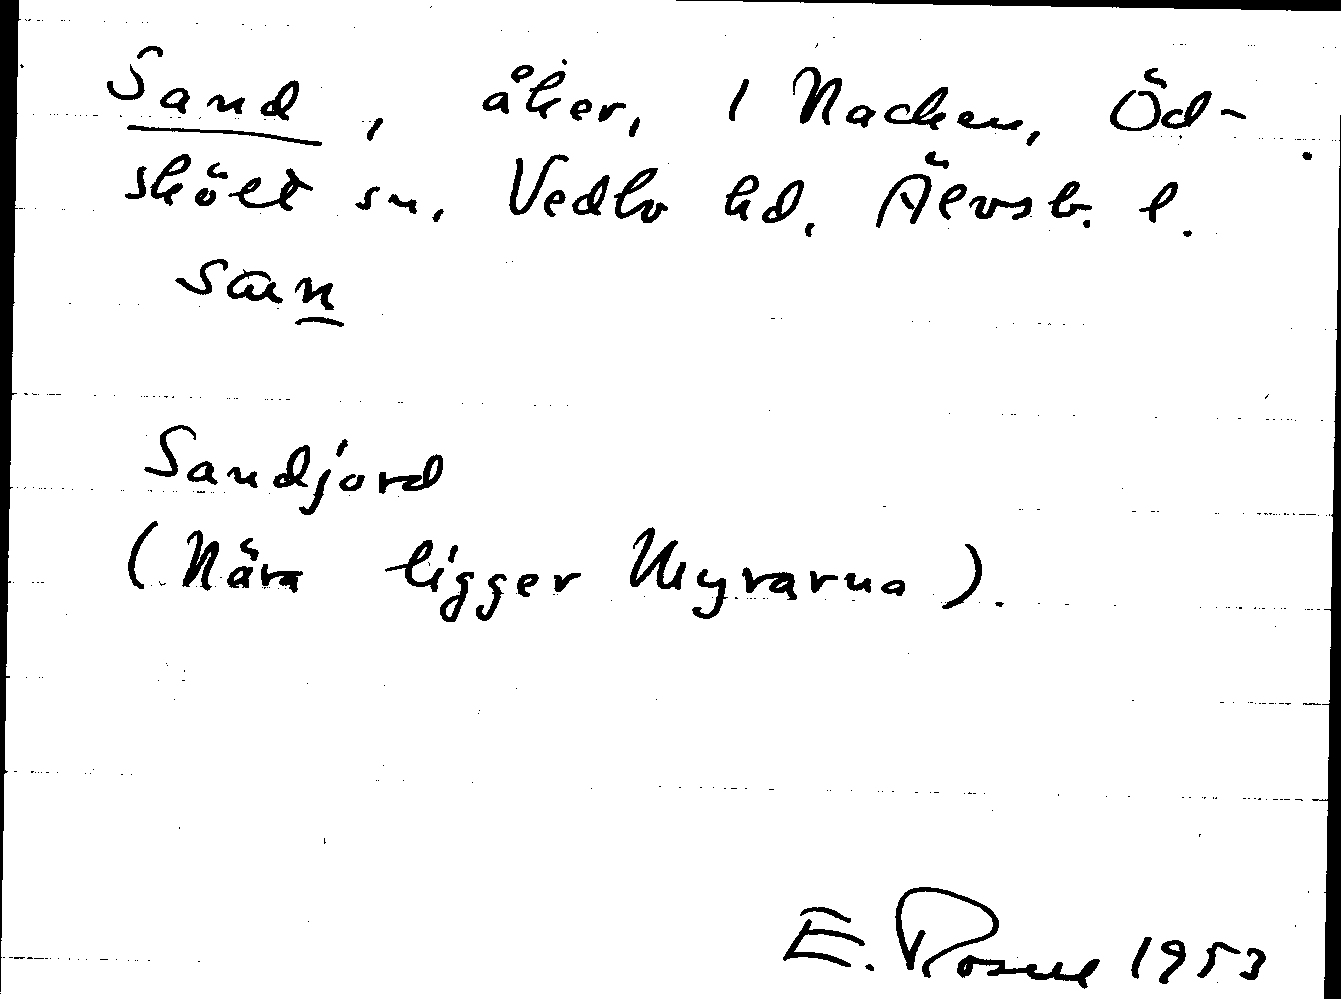 Sand, åker, 1 Nacken, Öd-
skölt sn, Vedbo hd, Älvsb. l.
san
Sandjord
(Nära ligger Myrarna).
E. Rosell 1953